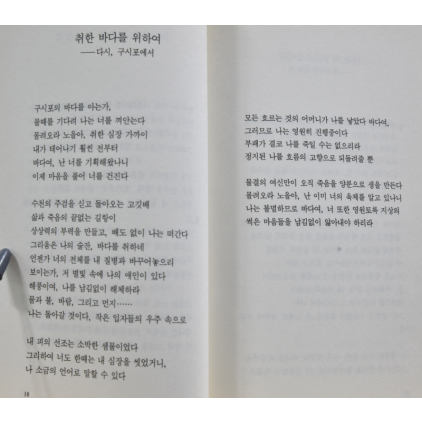 취한 바다를 위하여
——다시, 구시포에서
구시포의 바다를 아는가,
물때를 기다려 나는 너를 껴안는다
몰려오라 노을아, 취한 심장 가까이
내가 태어나기 훨씬 전부터
바다여, 난 너를 기획해왔나니
이제 마음을 풀어 너를 건진다
수천의 주검을 싣고 돌아오는 고깃배
삶과 죽음의 끝없는 길항이
상상력의 부력을 만들고, 배도 없이 나는 떠간다
그리움은 나의 술잔, 바다를 취하게 하네
언젠가 너의 전체를 내 질병과 바꾸어놓으리
보이는가, 저 별빛 속에 나의 애인이 있다
해풍이여, 나를 남김없이 해체하라
물과 불, 바람, 그리고 먼지……
나는 돌아갈 것이다, 작은 입자들의 우주 속으로
내 피의 선조는 소박한 생물이었다
그리하여 너도 한때는 내 심장을 씻었거니,
나 소금의 언어로 말할 수 있다
18
모든 흐르는 것의 어머니가 나를 낳았다 바다여,
그러므로 나는 영원히 진행중이다
부패가 결코 나를 죽일 수는 없으리라
정지된 나를 흐름의 고향으로 되돌려줄 뿐
물결의 여신만이 오직 죽음을 양분으로 생을 만든다
몰려오라 노을아, 난 이미 너의 육체를 알고 있나니
나는 불멸하므로 바다여, 너 또한 영원토록 지상의
썩은 마음들을 남김없이 핥아내야 하리라